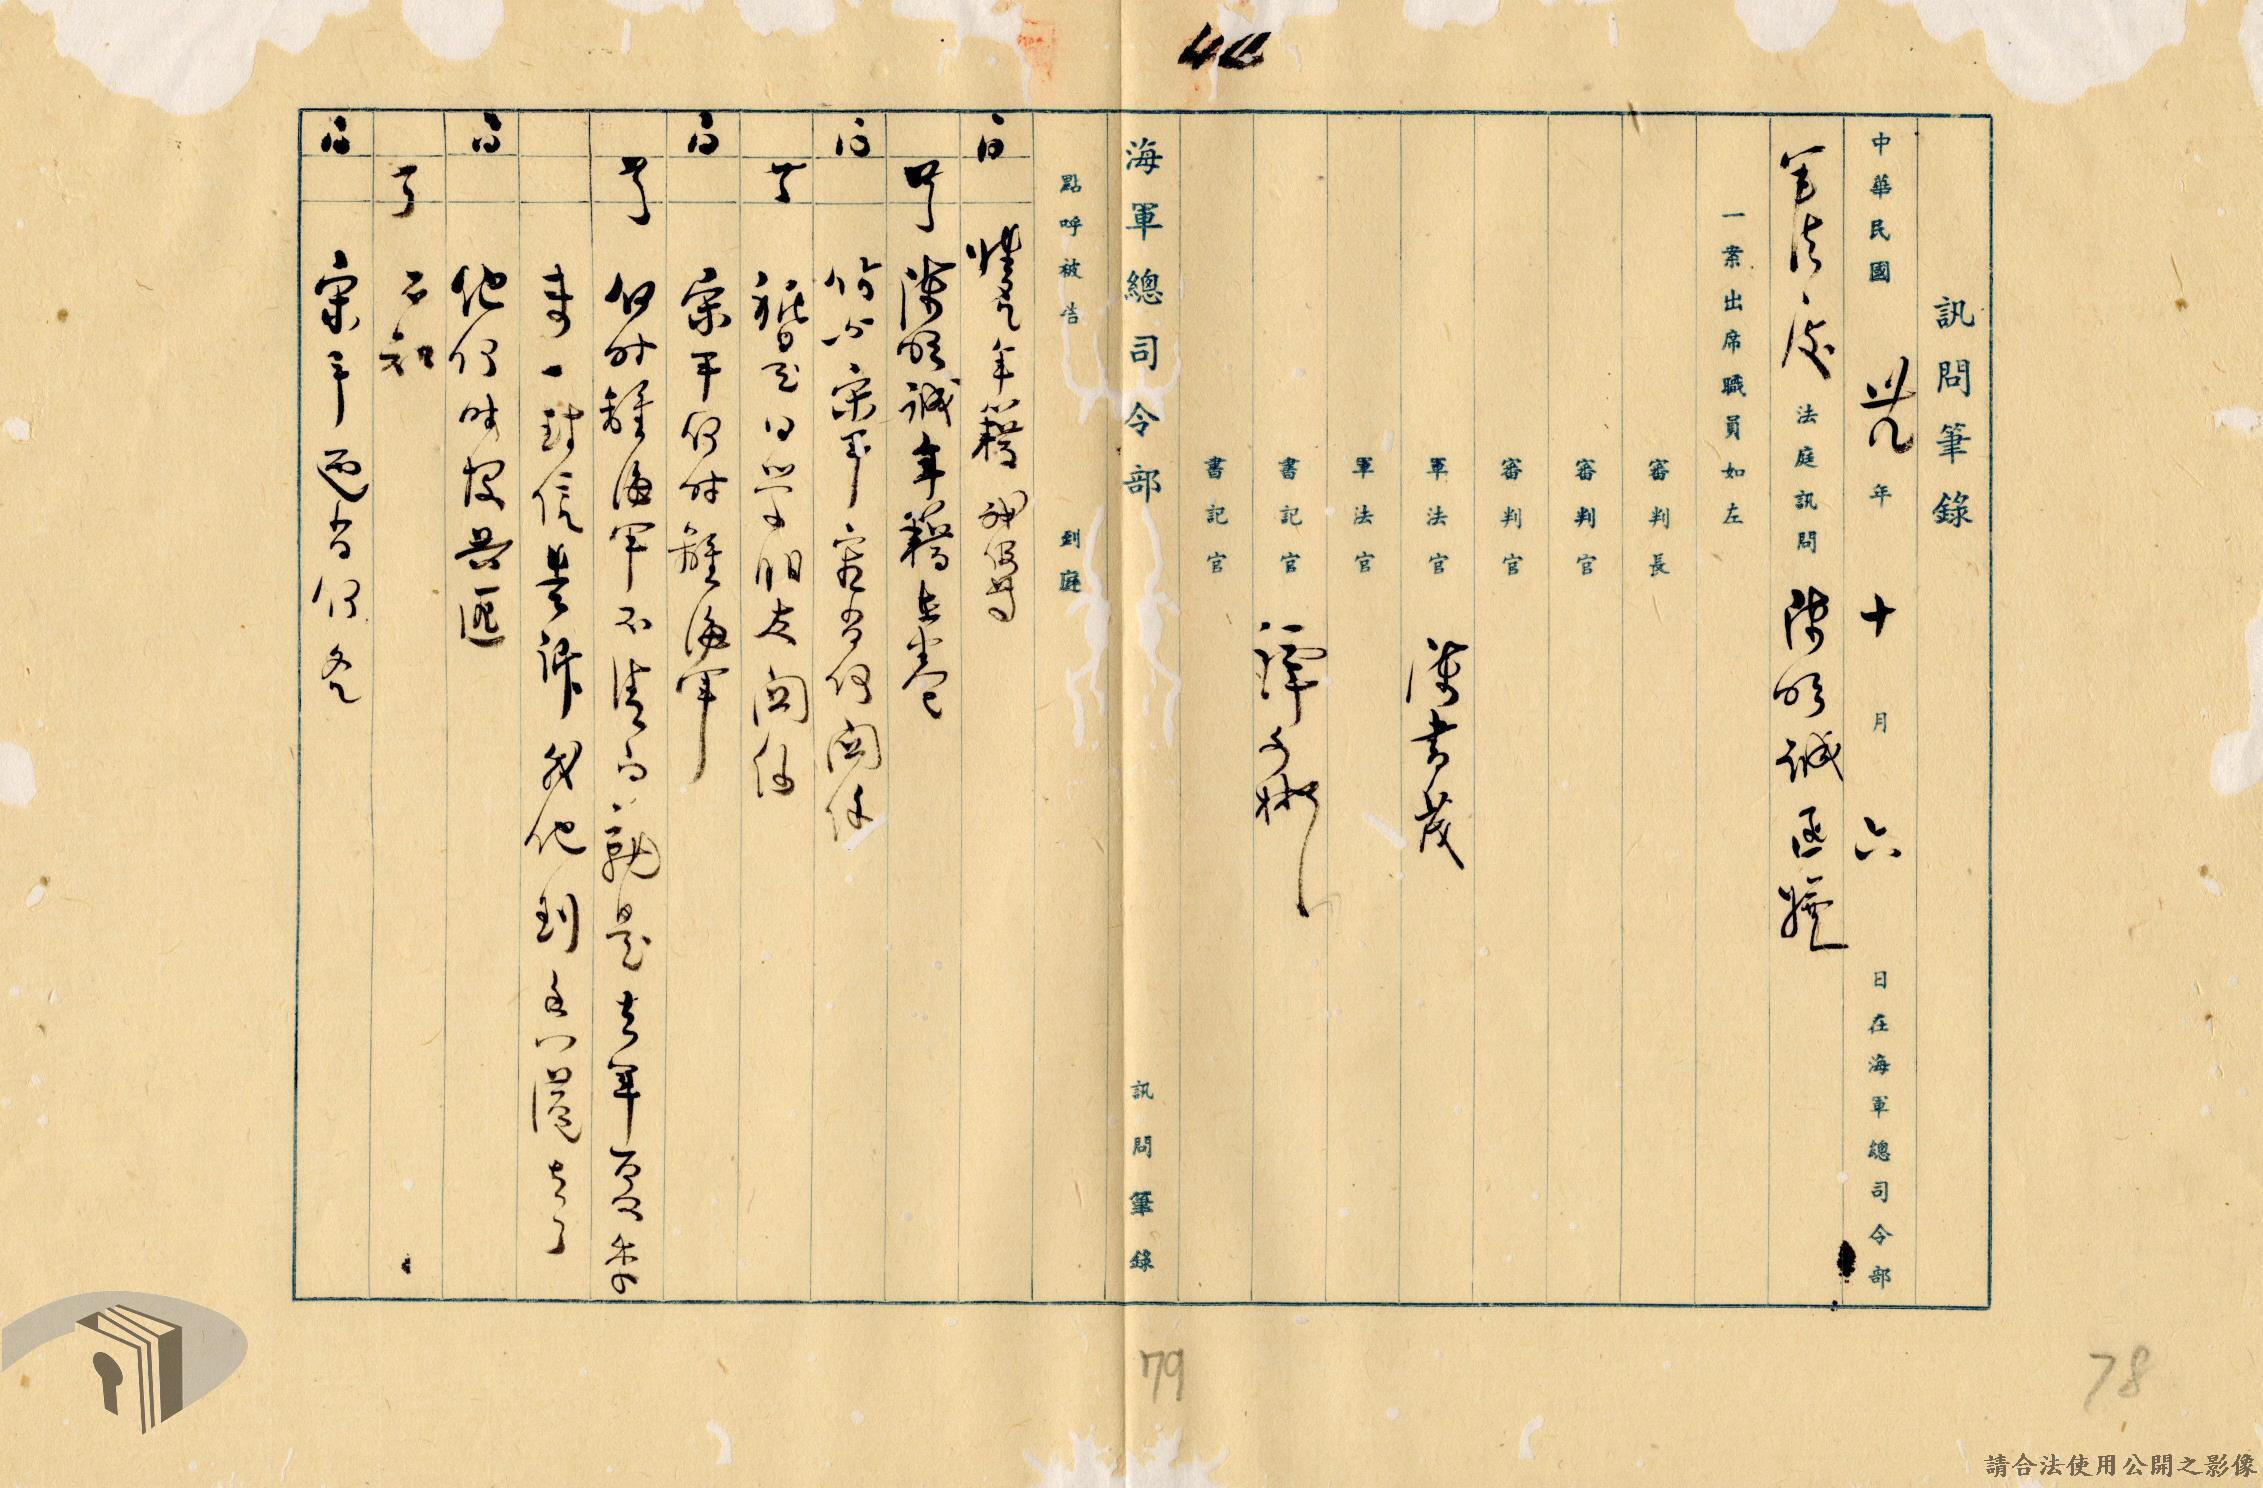 訊問筆錄
中華民國卅八年十月六日在海軍總司令部
軍法處法庭訊問陳明誠匪嫌
一案出席職員如左
審判長
審判官
審判官
軍法官 陳書茂
軍法官
書記官 譚
書記官
海軍總司令部 訊問筆錄
點呼被告 到庭
問 姓名年籍
答 陳明誠年籍在卷
問 你與宋平究有何關係
答 祇是同學朋友關係
問 宋平何時離海軍
答 何時離海軍不清白就是去年夏季
來一封信告訴我他到香港去了
問 他何時投共匪
答 不知
問 宋平還有何名
40
79
78
請合法使用公開之影像